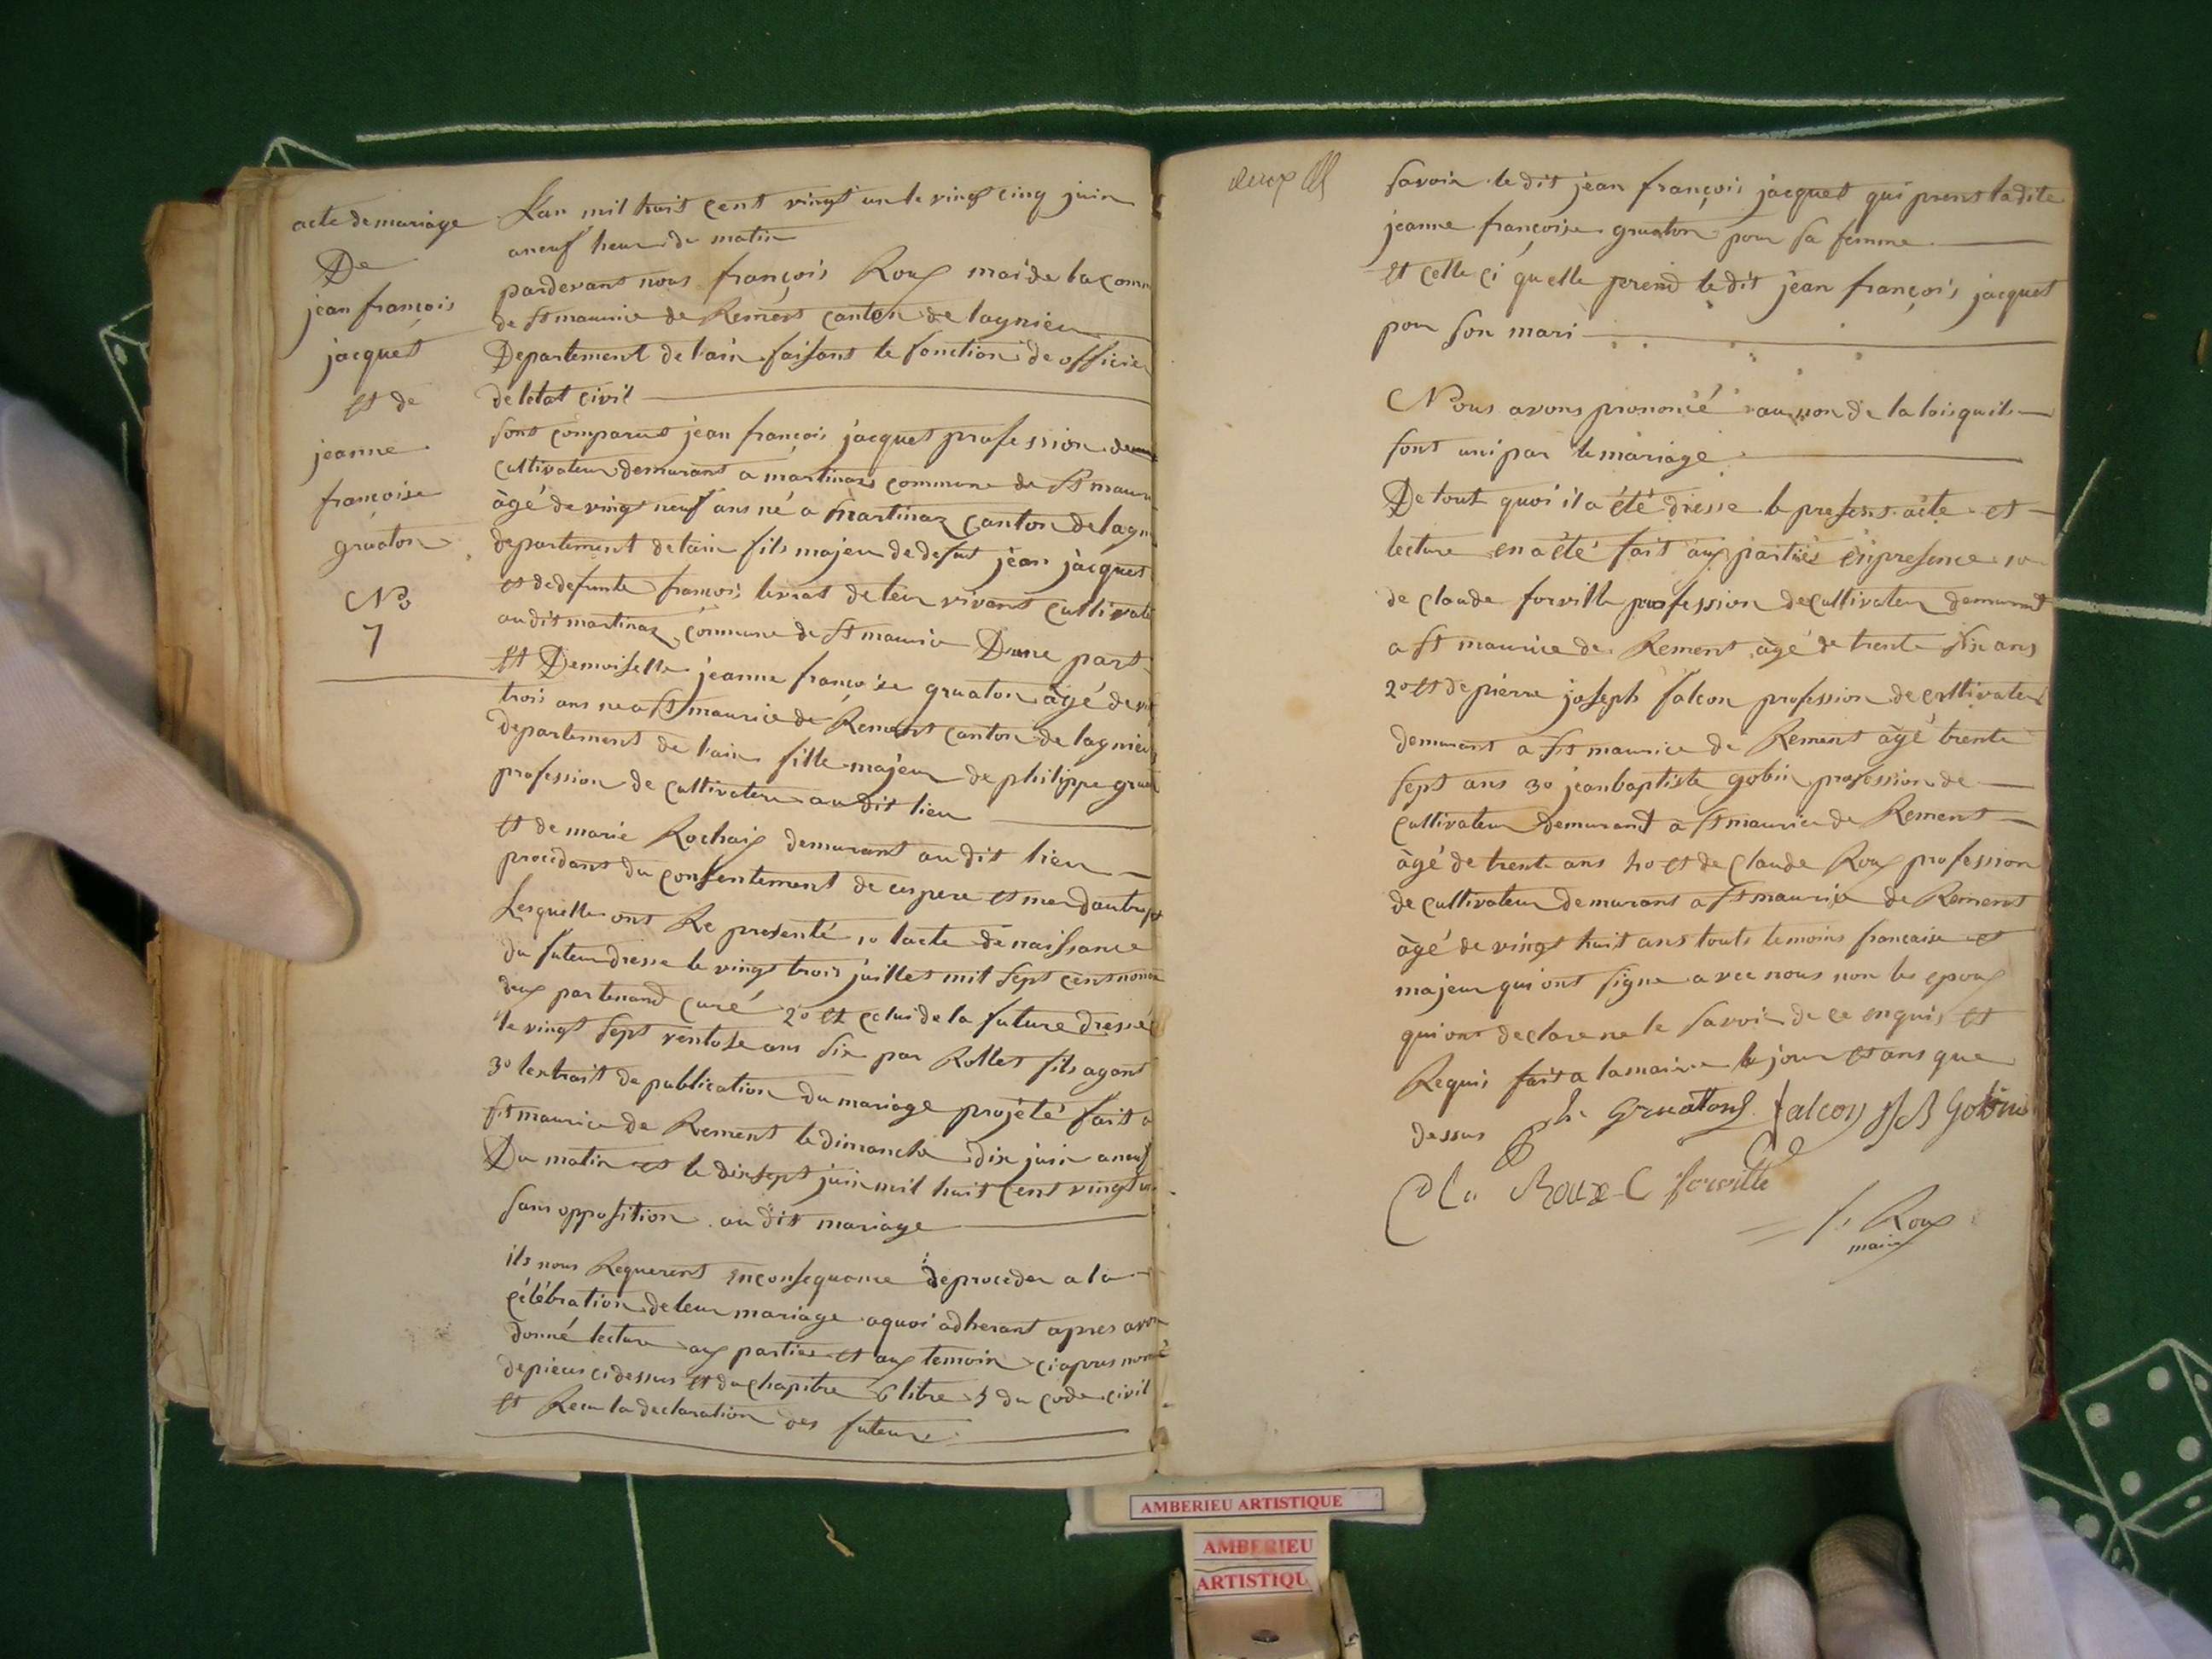 acte de mariage
De
jean françois
jacquet
et de
jeanne
françoise
gruaton
No
7
L'an mil huit cent vingt un le vingt cinq juin
a neuf heur de matin
pardevant nous françois Roux mai de la comm
de St maurice de Remens canton de lagnieu
Departement de l'ain faisant le fonction de officier
de letat civil
sont comparus jean françois jacquet profession de
cultivateur demurant a martinaz commune de St mauri
âgé de vingt neuf ans né a martinaz canton de lagn
departement de lain fils majeur de defunt jean jacquet
et de defunte françois levrat de leur vivant cultivate
au dit martinaz commune de St maurice Dune part
Et Demoiselle jeanne françoise gruaton âgé de vin
trois ans ne a St maurice de Remens canton de lagnieu
departement de l'ain fille majeur de philippe gruat
profession de cultivateur au dit lieu
et de marie Rochaix demurant au dit lieu
procédant du consentement de ces pere et mer dautre pt
Lesquelle ont Representé 1o lacte de naissance
du futeur dresse le vingt trois juillet mil sept cent nonan
deux par tenand curé 2o et celui de la future dressé
le vingt sept ventose ans six par Rollet fils agant
3o lextrait de publication du mariage projeté fait a
St maurice de Rement le dimanche dix juin a neuf
Du matin et le dix sept juin mil huit cent vingt un
sans opposition au dit mariage
ils nous Requerent en consequance de proceder a la
célébration de leur mariage a quoi adherant apres avoi
donné lecture aux parties et aux temoin ci apres nomé
de pieces ci dessus et du chapitre 6 litre 5 du code civil
et Recu la declaration des futeur
deux
savoir le dit jean françois jacquet qui prent ladite
jeanne françoise gruaton pour sa femme
et celle ci quelle prend le dit jean françois jacquet
pour son mari
Nous avons prononcé au non de la lois quils
sont uni par le mariage
De tout quoi il a été dresse le present acte et
lecture en a été fait aux parties en presence 1o
de claude forville profession de cultivateur demurant
a St maurice de Rement âgé de trente six ans
2o et de pierre joseph falcon profession de cultivateur
demurant a St maurice de Rement âgé trente
sept ans 3o jean baptiste gobin profession de
cultivateur demurant à St maurice de Rement
âgé de trente ans 4o et de Claude Roux profession
de cultivateur demurant a St maurice de Rement
âgé de vingt huit ans touts temoins francaise et
majeur qui ont signe avec nous non les epoux
qui ont declare ne le savoir de ce enquis et
Requis fait a la mairie le jour et ans que
dessus ph. Gruaton falcon JB Gobin
Cla Roux C forville
f. Roux
maire
AMBERIEU ARTISTIQUE
AMBERIEU
ARTISTIQU